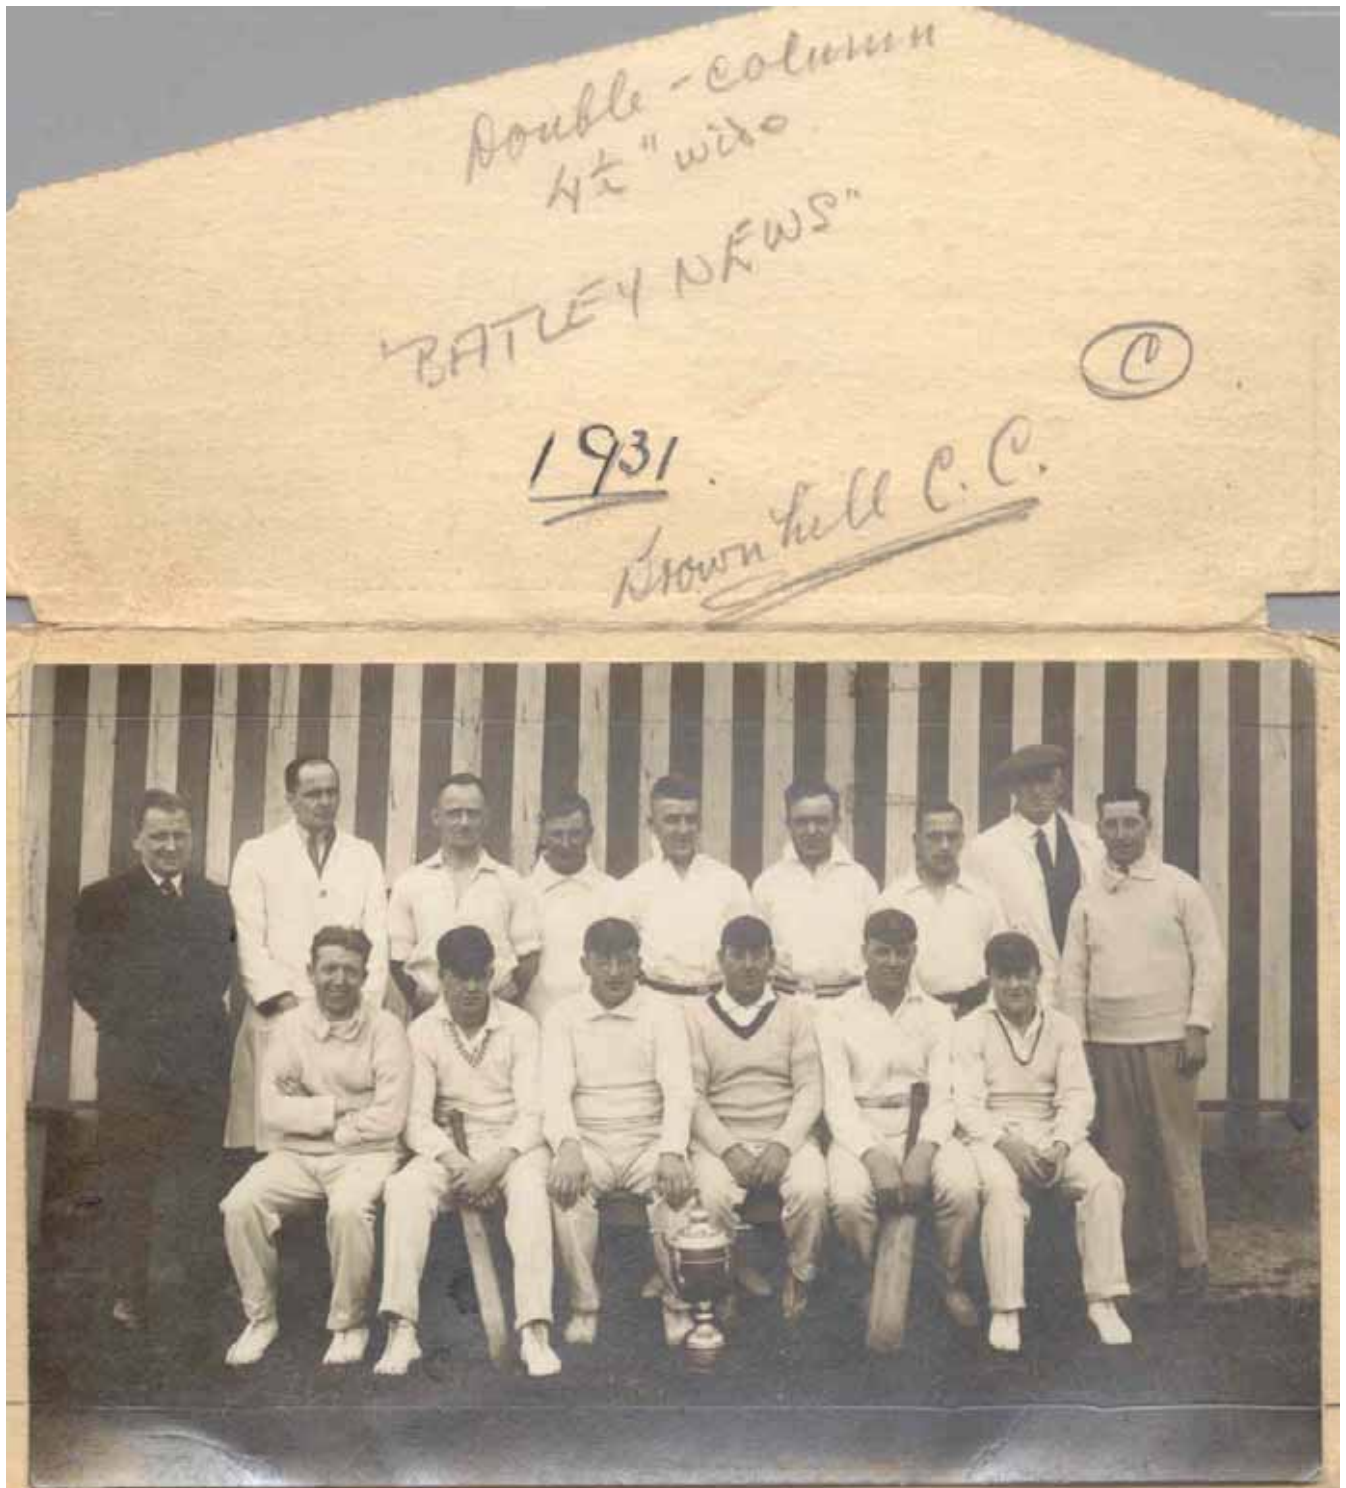 Double-column
4½" wide
"BATLEY NEWS"
C
1931.
Brownhill C.C.